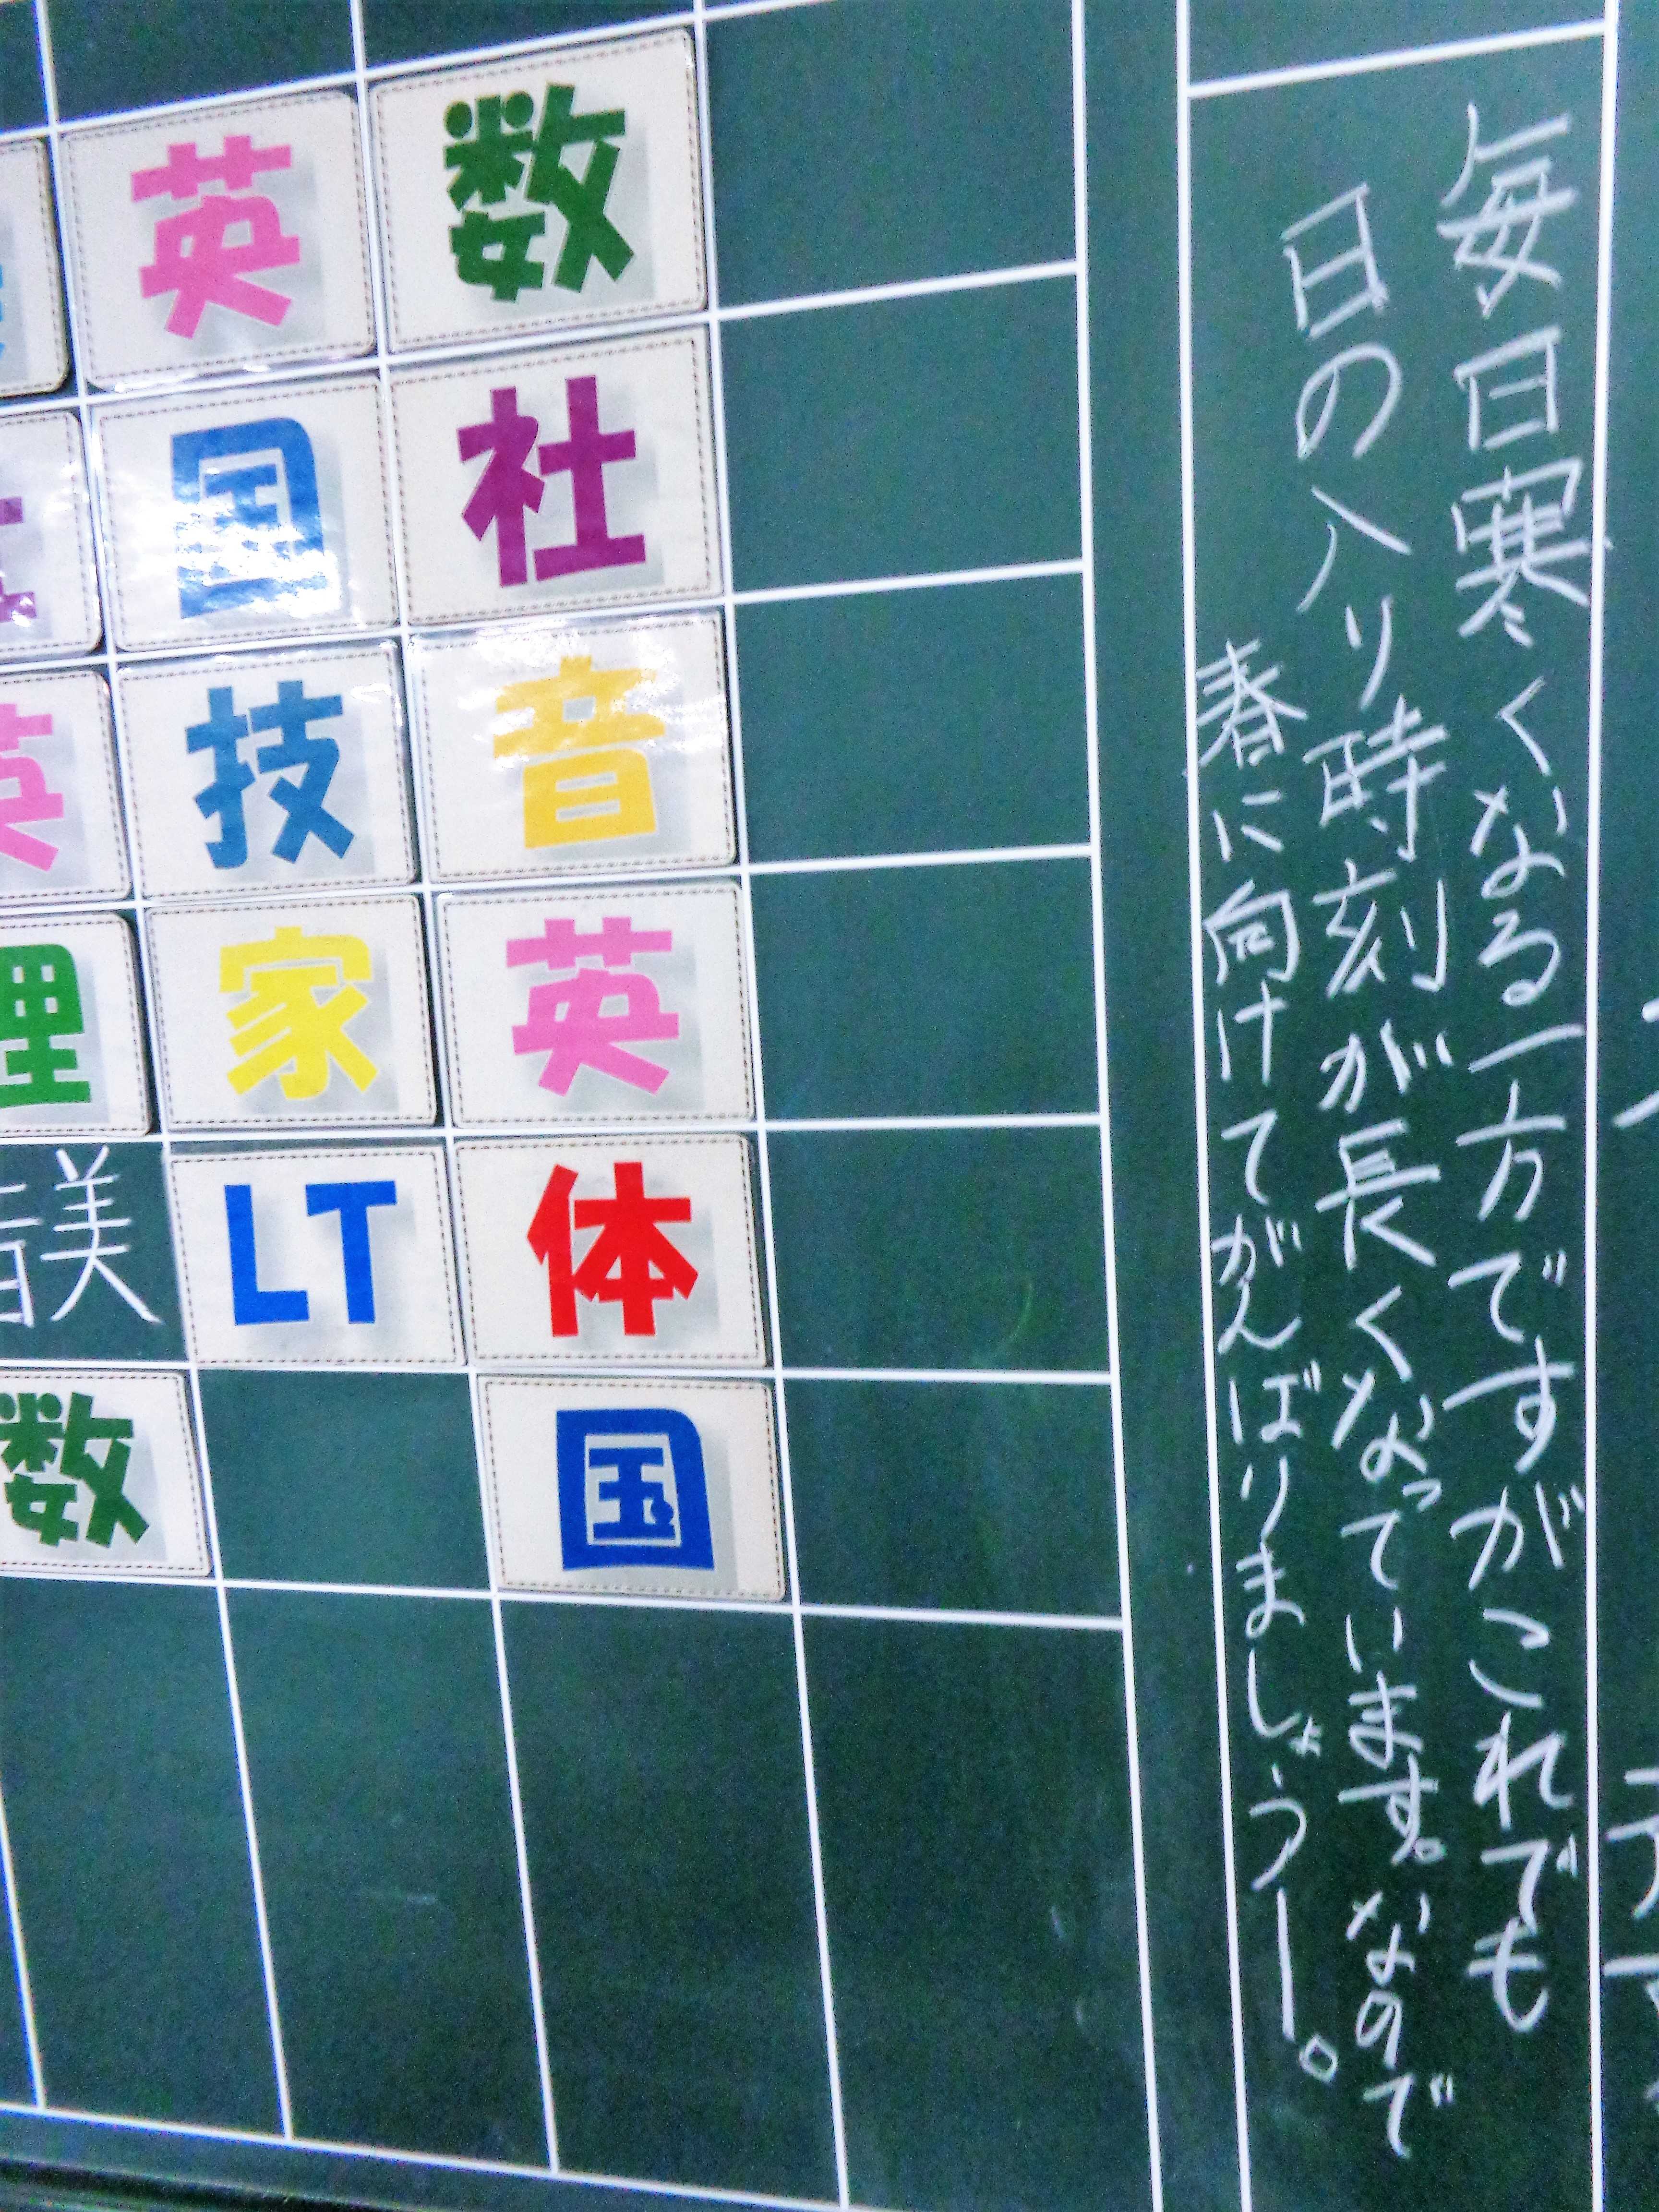 毎日寒くなる一方ですがこれでも
日の入り時刻が長くなっています。なので
春に向けてがんばりましょうー。
数
社
音
英
体
国
英
国
技
家
LT
英
理
音美
数